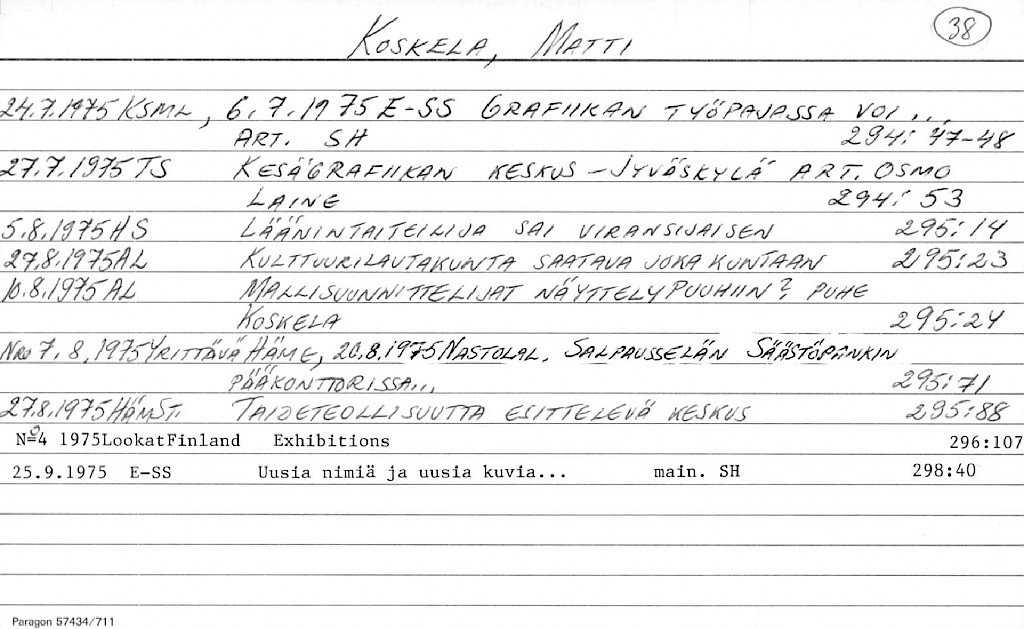 38
KOSKELA, MATTI
24.7.1975 KSML, 6.7.1975 E-SS GRAFIIKAN TYÖPAJASSA VOI...
ART. SH 294: 47-48
27.7.1975 TS KESÄGRAFIIKAN KESKUS - JYVÄSKYLÄ ART. OSMO
LAINE 294: 53
5.8.1975 HS LÄÄNINTAITEILIJA SAI VIRANSIJAISEN 295:14
27.8.1975 AL KULTTUURILAUTAKUNTA SAATAVA JOKA KUNTAAN 295:23
10.8.1975 AL MALLISUUNNITTELIJAT NÄYTTELYPUUHIIN? PUHE
KOSKELA 295:24
Nro 7.8.1975 YRITTÄVÄ HÄME, 20.8.1975 NASTOLAL. SALPAUSSELÄN SÄÄSTÖPANKIN
PÄÄKONTTORISSA... 295:71
27.8.1975 HÄMST. TAIDETEOLLISUUTTA ESITTELEVÄ KESKUS 295:88
Nº4 1975LookatFinland Exhibitions 296:107
25.9.1975 E-SS Uusia nimiä ja uusia kuvia... main. SH 298:40
Paragon 57434/711